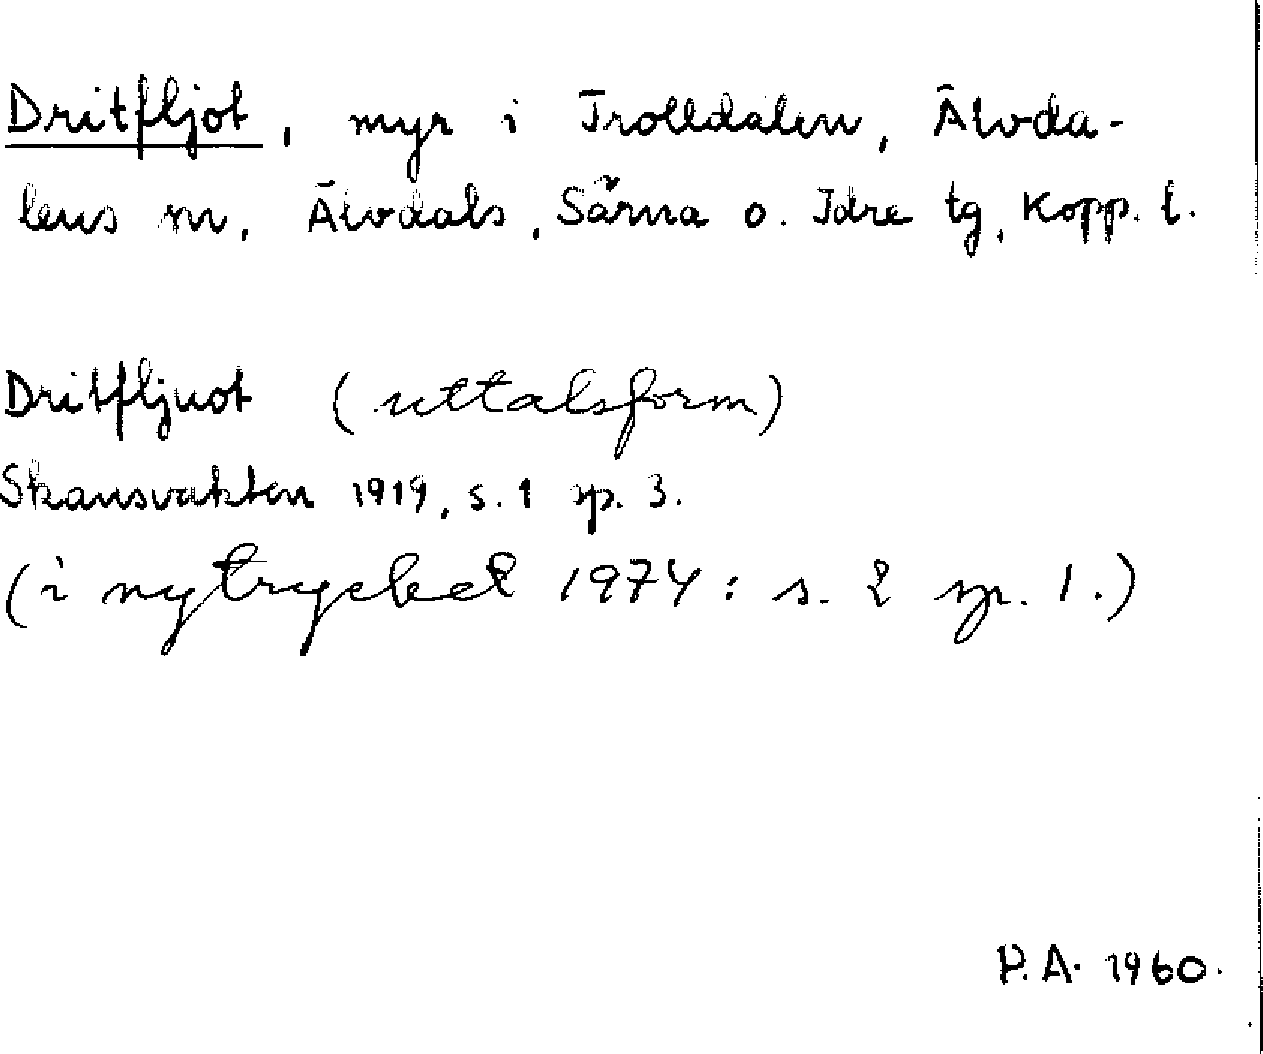 Dritfljot, myr i Trolldalen, Älvda-
lens sn, Älvdals, Särna o. Idre tg, Kopp. l.
Dritfljuot (uttalsform)
Skansvakten 1919, s. 1 sp. 3.
(i nytrycket 1974: s. 2 sp. 1.)
P.A. 1960.